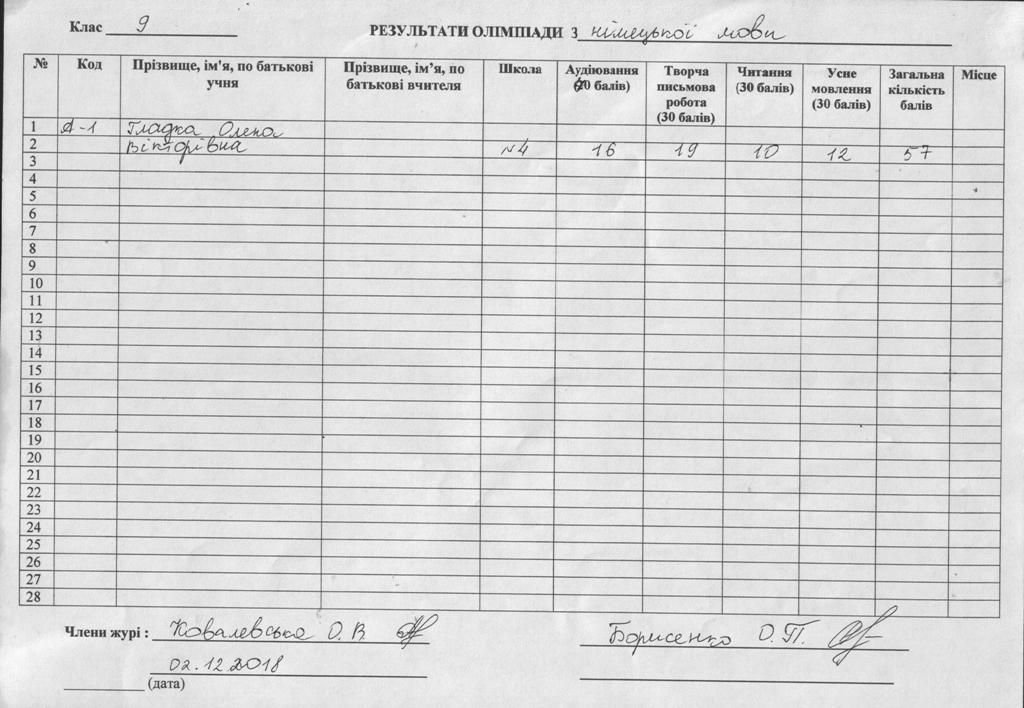 Клас 9 РЕЗУЛЬТАТИ ОЛІМПІАДИ З німецької мови
№ Код Прізвище, ім'я, по батькові учня Прізвище, ім'я, по батькові вчителя Школа Аудіювання (20 балів) Творча письмова робота (30 балів) Читання (30 балів) Усне мовлення (30 балів) Загальна кількість балів Місце
1 А-1 Гладка Олена
2 Вікторівна №4 16 19 10 12 57
3
4
5
6
7
8
9
10
11
12
13
14
15
16
17
18
19
20
21
22
23
24
25
26
27
28
Члени журі : Ковалевська О. В Борисенко О.П.
02.12.2018
(дата)